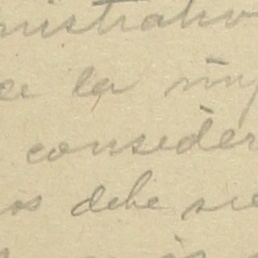 nistrativ
ce la imp
consider
os debe se